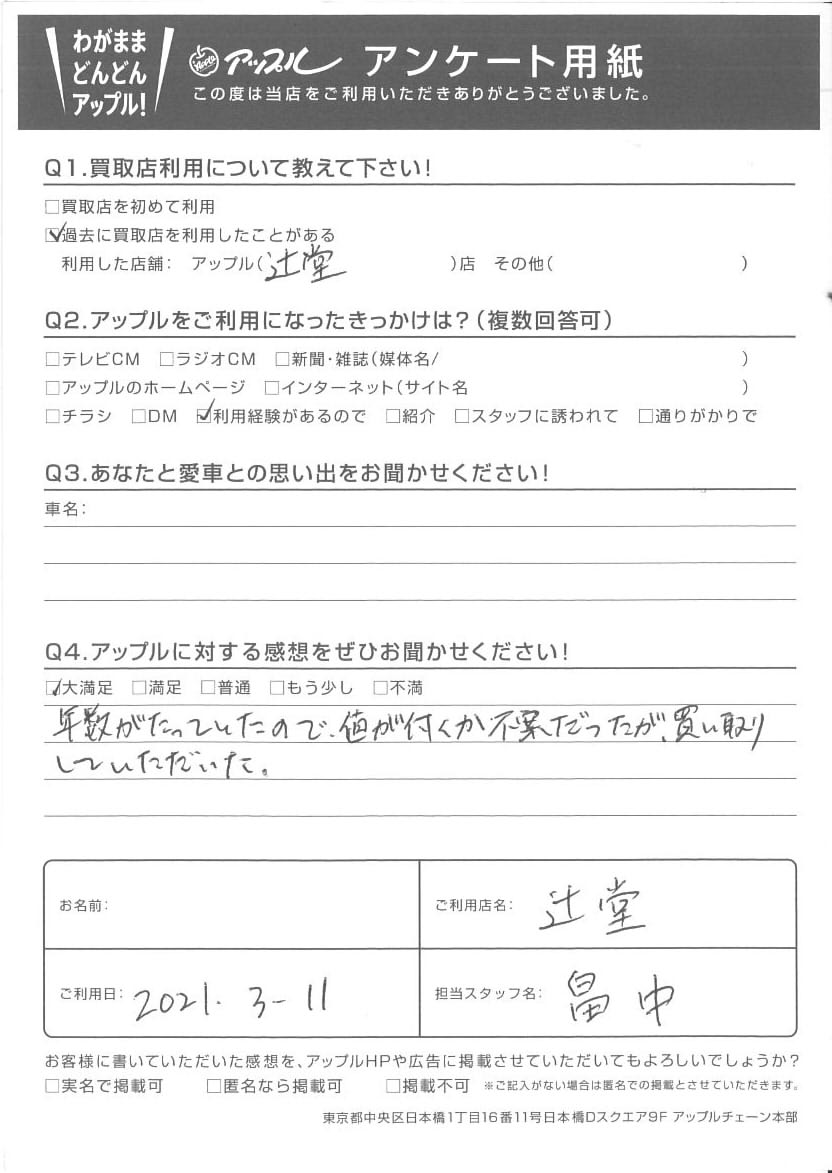 わがまま
どんどん
アップル!
Apple アップル アンケート用紙
この度は当店をご利用いただきありがとうございました。
Q1.買取店利用について教えて下さい!
□買取店を初めて利用
☑過去に買取店を利用したことがある
利用した店舗: アップル(辻堂 )店 その他( )
Q2.アップルをご利用になったきっかけは?(複数回答可)
□テレビCM □ラジオCM □新聞・雑誌(媒体名/ )
□アップルのホームページ □インターネット(サイト名 )
□チラシ □DM ☑利用経験があるので □紹介 □スタッフに誘われて □通りがかりで
Q3.あなたと愛車との思い出をお聞かせください!
車名:
Q4.アップルに対する感想をぜひお聞かせください!
☑大満足 □満足 □普通 □もう少し □不満
年数がたっていたので、値が付くか不案だったが、買い取り
していただいた。
お名前:
ご利用店名: 辻堂
ご利用日: 2021. 3-11
担当スタッフ名: 畠中
お客様に書いていただいた感想を、アップルHPや広告に掲載させていただいてもよろしいでしょうか?
□実名で掲載可 □匿名なら掲載可 □掲載不可 ※ご記入がない場合は匿名での掲載とさせていただきます。
東京都中央区日本橋1丁目16番11号日本橋Dスクエア9F アップルチェーン本部